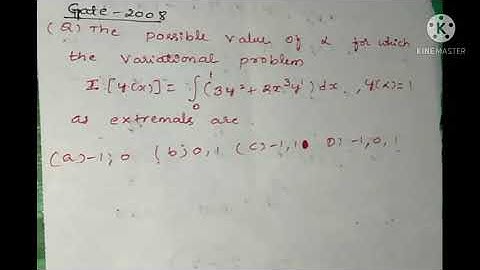 Gate - 2008
(Q) The possible value of α for which
the variational problem
I [y(x)] = ∫₀¹ (3y² + 2x³y') dx , y(α) = 1
as extremals are
(a) -1, 0 (b) 0, 1 (c) -1, 1 D) -1, 0, 1
K
Made with
KINEMASTER